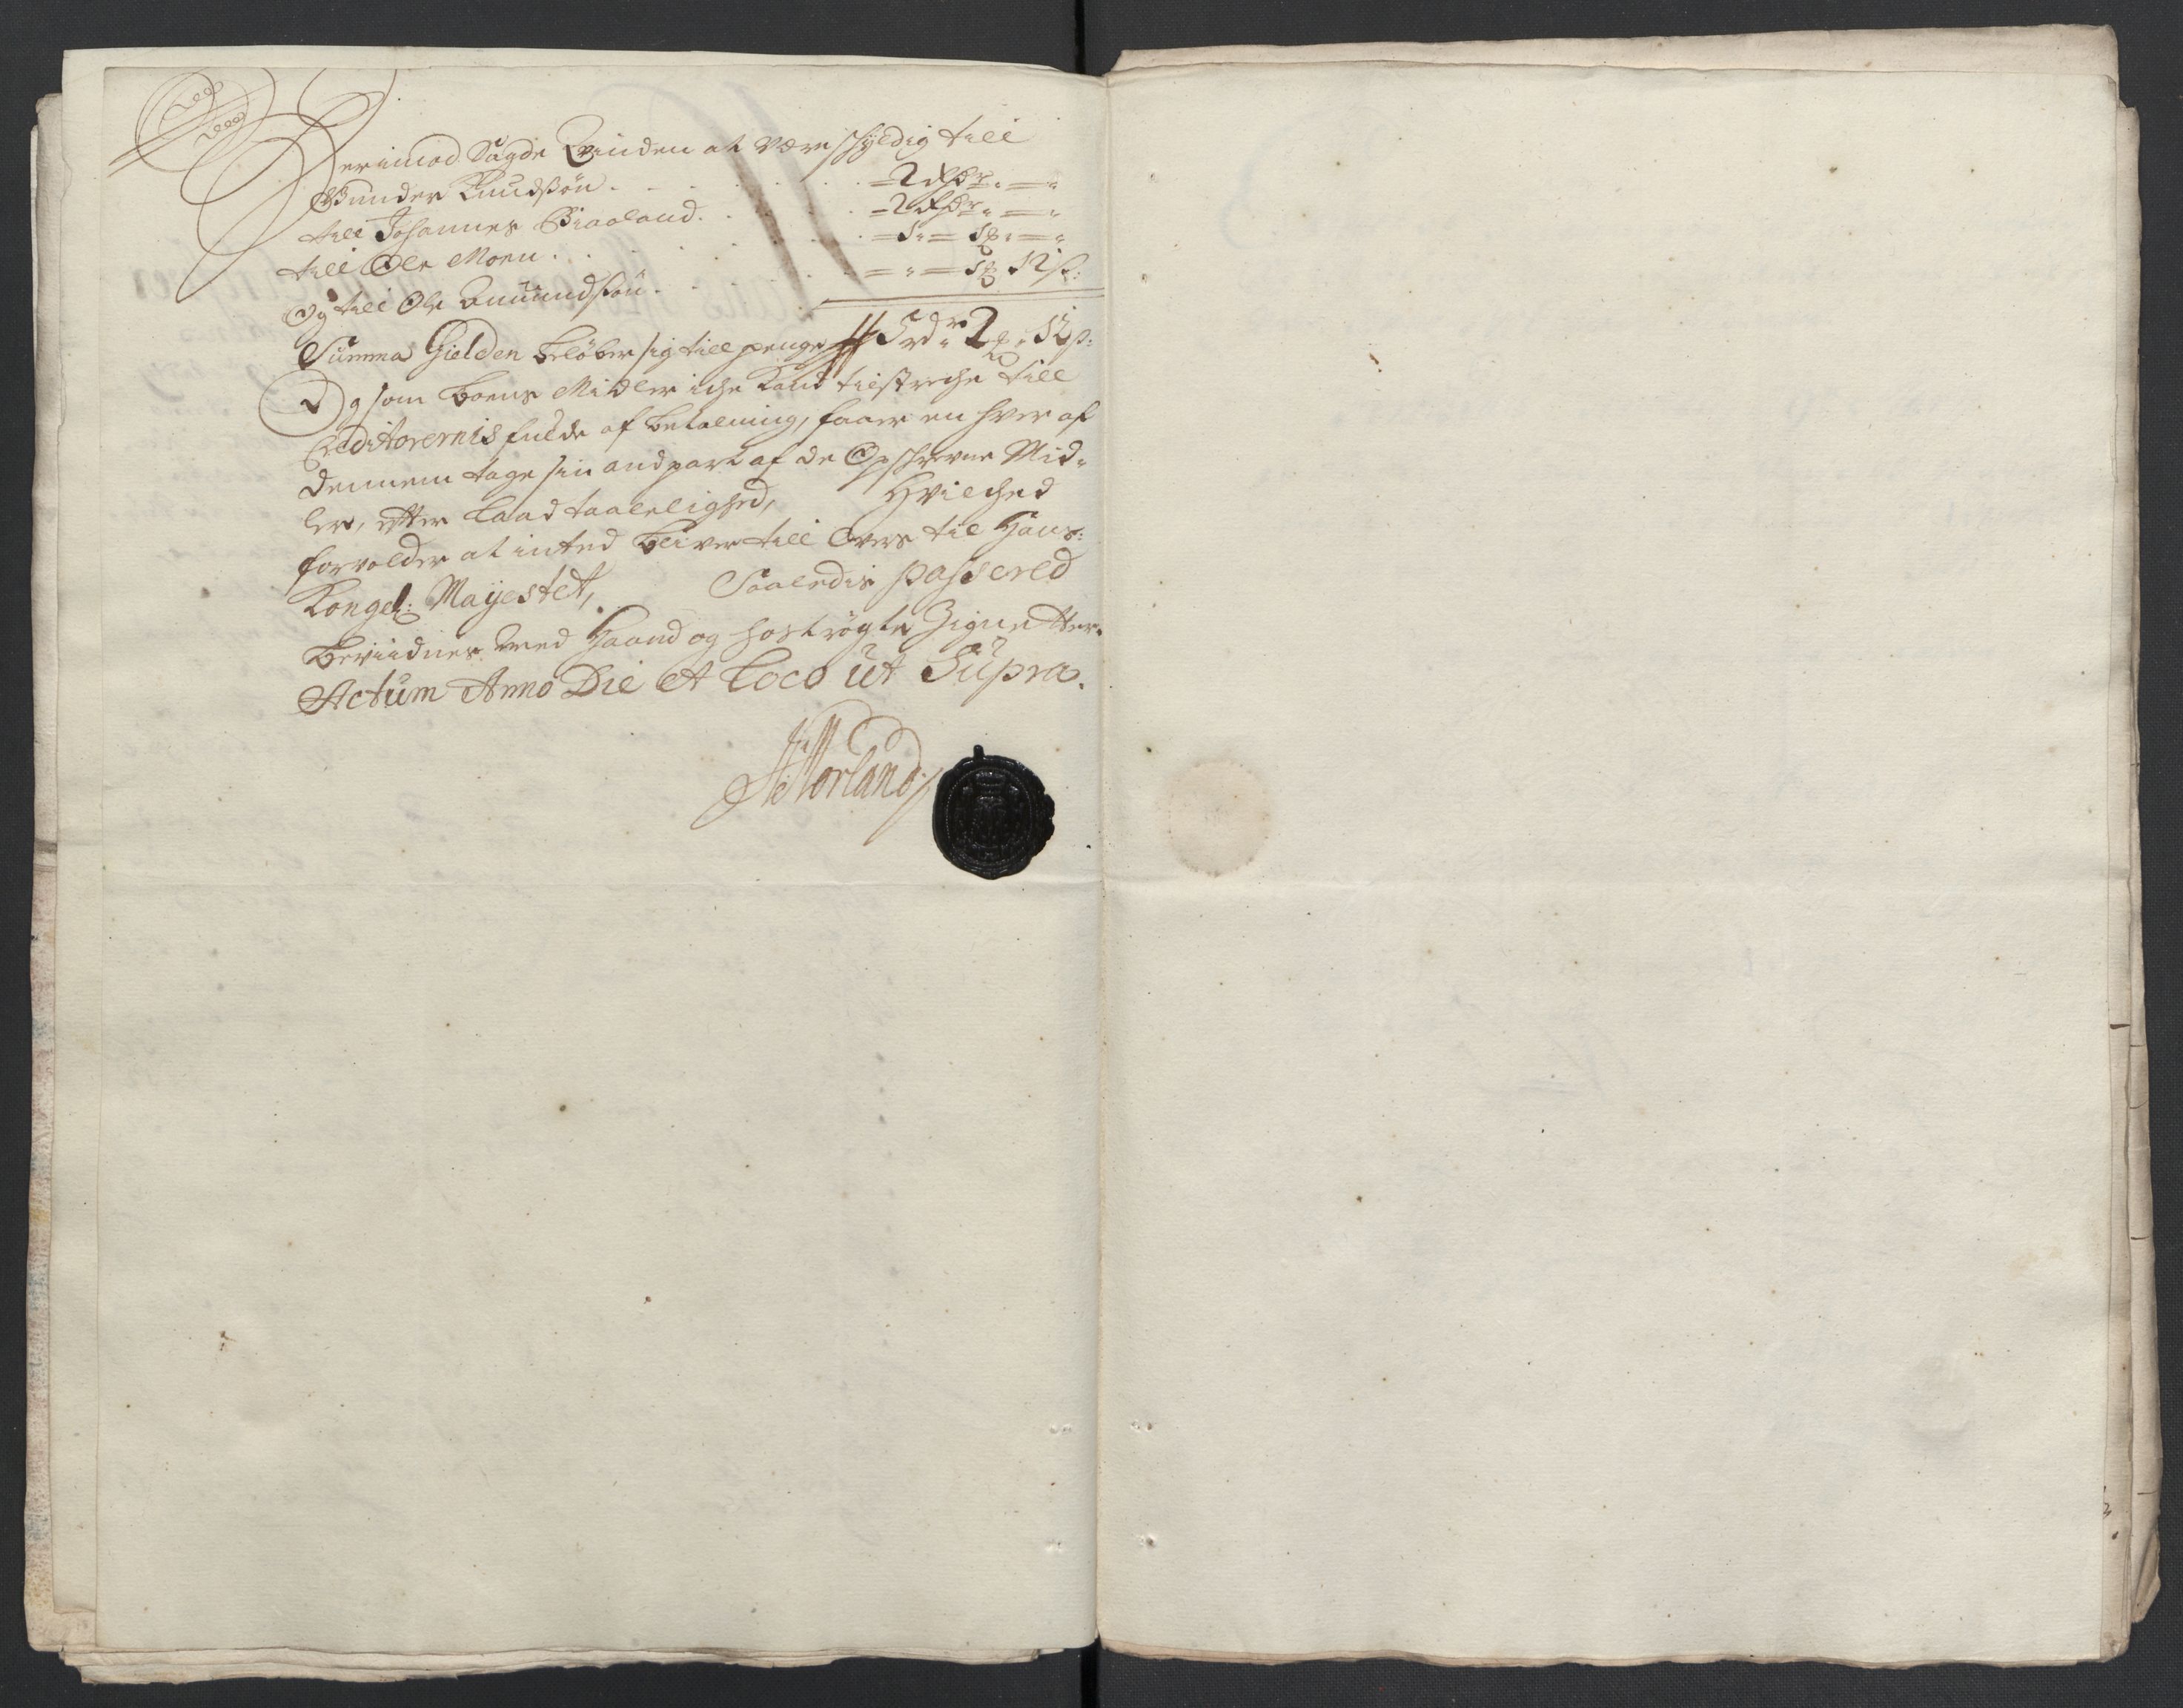 Derimod Sagde Qvinden at være schyldig till
Gunder Knudsøn . . . . . - 2 rdr. - -
till Johannes Biaaland . . . - 2 rdr. - -
till Ole Moen . . . . . . - " - 1 ₰ - -
Og till Ole Amundsøn . . . . - " - 1 ₰ 12 ß:
Summa Gielden beløber sig till penge 5 rdr. 2 ₰. 12 ß:
Og som boens Midler iche kand tilstreche till
Creditorernis fulde af betalning, faaer en hver af
dennem tage sin andpart af de Opschrevne Mid-
ler, etter Laad taalelighed, Hvilched
forvolder at inted bliver till Overs til Hans:
Kongel: Mayestet, Saaledis passered
beviidner med Haand og hostrøgte Zignetter.
Actum Anno Die et Loco ut Supra.
Norland